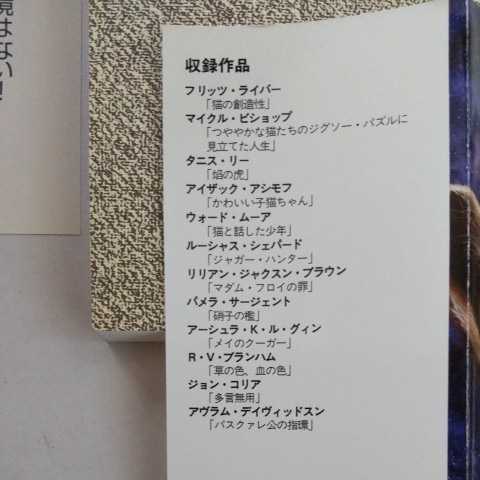 境はない!
収録作品
フリッツ・ライバー
「猫の創造性」
マイクル・ビショップ
「つややかな猫たちのジグソー・パズルに
見立てた人生」
タニス・リー
「焰の虎」
アイザック・アシモフ
「かわいい子猫ちゃん」
ウォード・ムーア
「猫と話した少年」
ルーシャス・シェパード
「ジャガー・ハンター」
リリアン・ジャクスン・ブラウン
「マダム・フロイの罪」
パメラ・サージェント
「硝子の檻」
アーシュラ・K・ル・グィン
「メイのクーガー」
R・V・ブランハム
「草の色、血の色」
ジョン・コリア
「多言無用」
アヴラム・デイヴィッドスン
「パスクァレ公の指環」